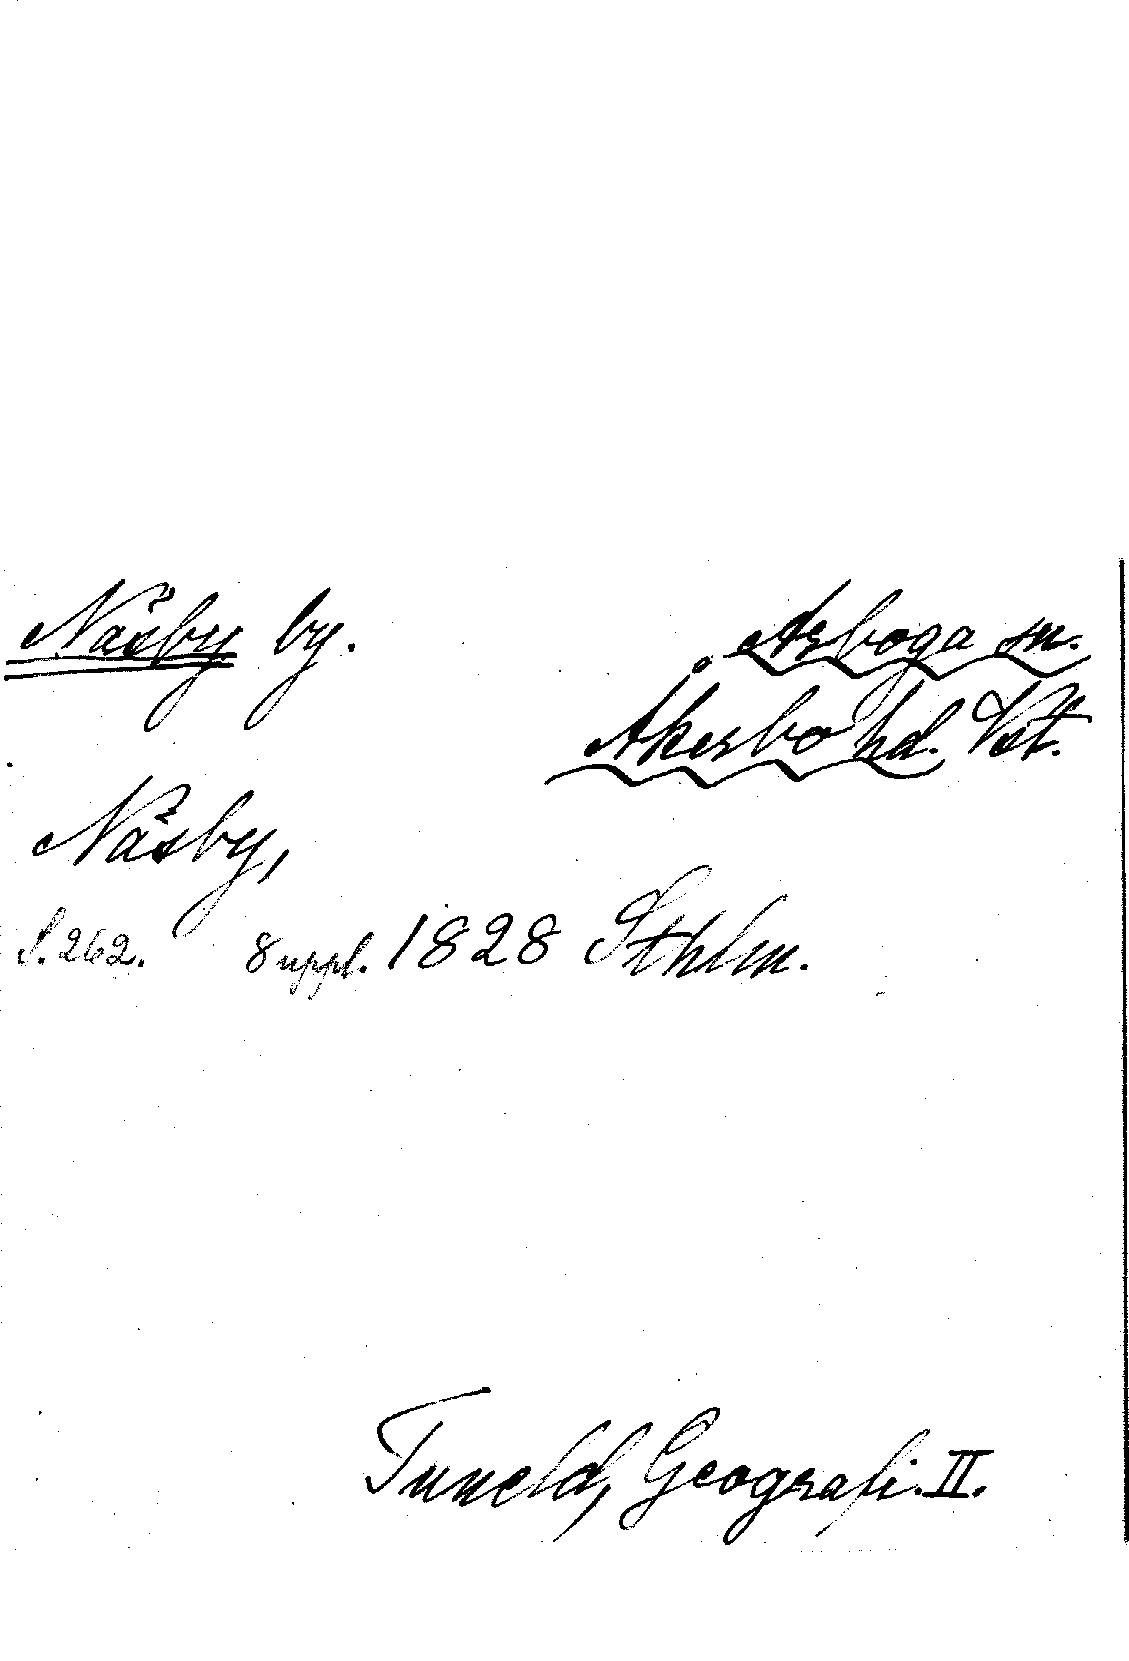 Näsby by.
Arboga sn.
Åkerbo hd. Vst.
Näsby,
S. 262. 8 uppl. 1828 Sthlm.
Tuneld, Geografi. II.